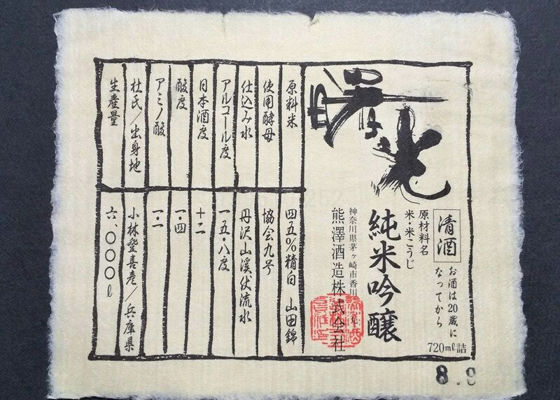 曙光
清酒
お酒は20歳に
なってから
720ml詰
原材料名
米・米こうじ
純米吟醸
神奈川県茅ヶ崎市香川
熊澤酒造株式会社
原料米 四五%精白 山田錦
使用酵母 協会九号
仕込み水 丹沢山渓伏流水
アルコール度 一五・八度
日本酒度 十二
酸度 一・四
アミノ酸 一・二
杜氏/出身地 小林/兵庫県
生産量 六、〇〇〇l
8.9